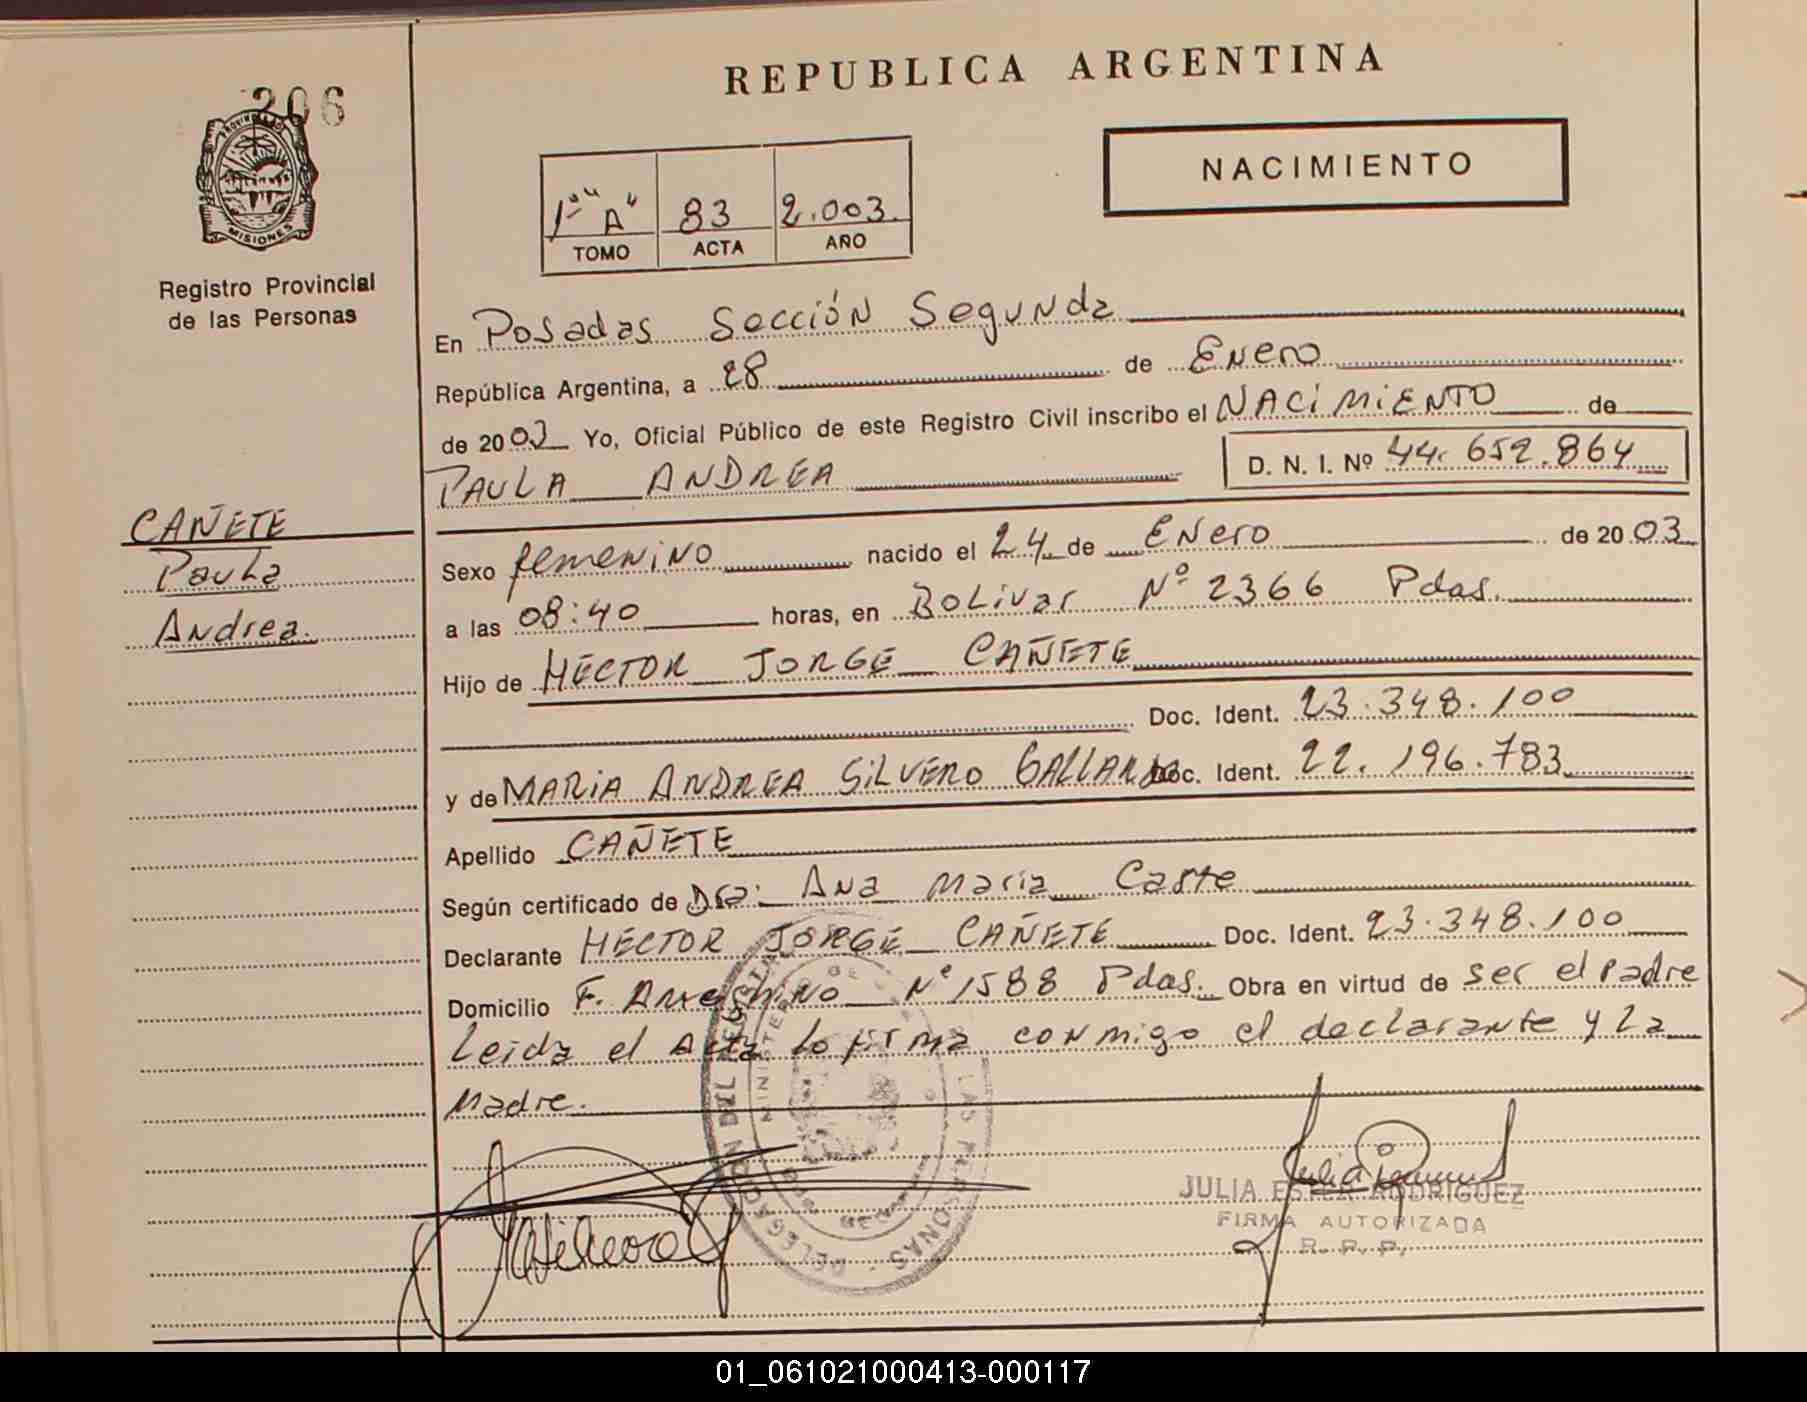 206
PROVINCIA DE
MISIONES
Registro Provincial
de las Personas
REPUBLICA ARGENTINA
NACIMIENTO
1º "A" 83 2.003.
TOMO ACTA AÑO
En Posadas Sección Segunda
República Argentina, a 28 de Enero
de 2003 Yo, Oficial Público de este Registro Civil inscribo el NACIMIENTO de
PAULA ANDREA D. N. I. Nº 44.652.864
CAÑETE
Paula
Andrea.
Sexo femenino nacido el 24 de Enero de 2003
a las 08:40 horas, en Bolivar Nº 2366 Pdas.
Hijo de HECTOR JORGE CAÑETE
Doc. Ident. 23.348.100
y de MARIA ANDREA SILVERO GALLARDO Doc. Ident. 22.196.783
Apellido CAÑETE
Según certificado de Dra: Ana Maria Caste
Declarante HECTOR JORGE CAÑETE Doc. Ident. 23.348.100
Domicilio F. Nº 1588 Pdas. Obra en virtud de ser el padre
Leida el Acta lo firma conmigo el declarante y La
Madre.
DELEGACION DEL REGISTRO LAS PERSONAS
MINISTERIO DE
JULIA ESTER RODRIGUEZ
FIRMA AUTORIZADA
R. P. P.
01_061021000413-000117